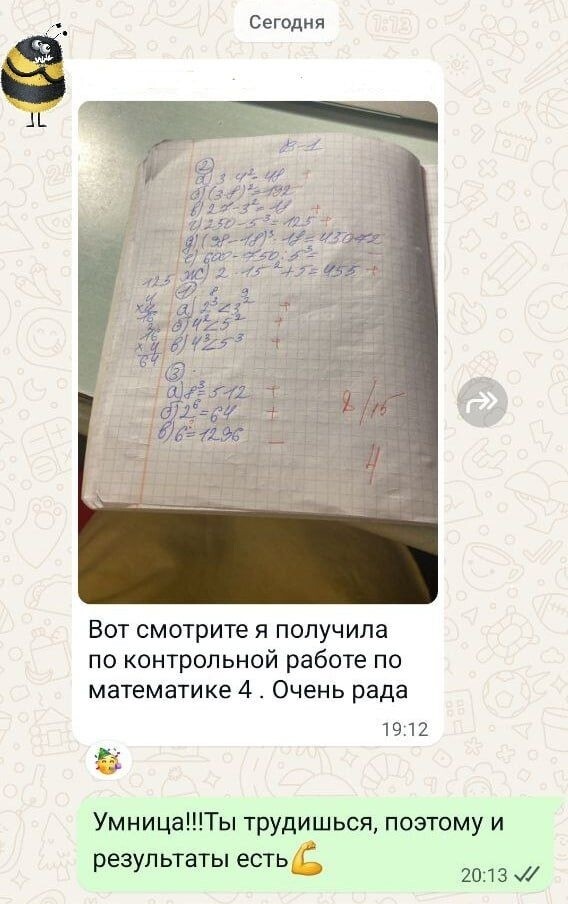 Сегодня
В-1
②
а) 3·4²=48 +
б) (3·8)²=192
в) 27-3²=18 +
г) 250-5³=125 +
д) (38-18)³·18=43072
е) 600-750:5³ -
ж) 2·15²+5=455 +
125
①
8 9
а) 2³<3² +
б) 4²<5² +
в) 4³<5³ +
4
×4
16
16
×4
64
③
а) 8³=512 +
б) 2⁶=64 +
=1296 -
8/15
4
Вот смотрите я получила
по контрольной работе по
математике 4 . Очень рада
19:12
Умница!!!Ты трудишься, поэтому и
результаты есть💪
20:13